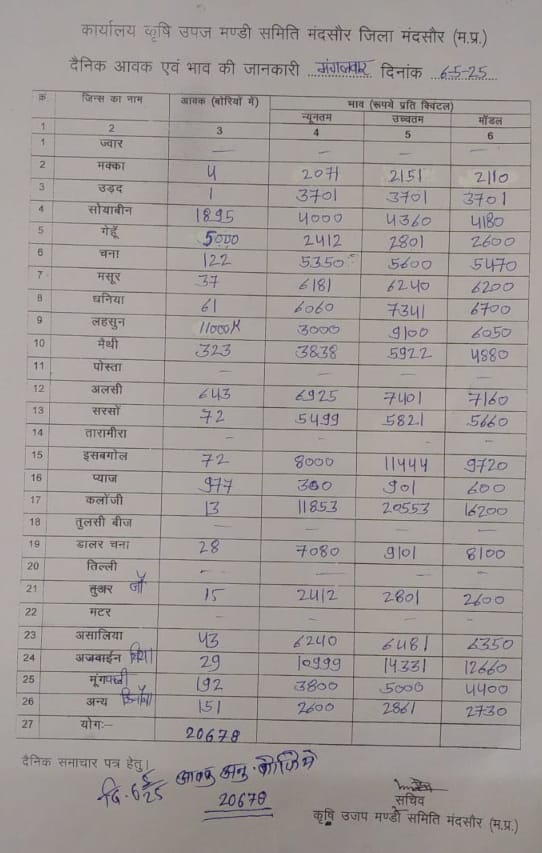 कार्यालय कृषि उपज मण्डी समिति मंदसौर जिला मंदसौर (म.प्र.)
दैनिक आवक एवं भाव की जानकारी मंगलवार दिनांक 6-5-25
क्र जिन्स का नाम आवक (बोरियों में) भाव (रूपये प्रति क्विंटल)
न्यूनतम उच्चतम मॉडल
1 2 3 4 5 6
1 ज्वार — — — —
2 मक्का 4 2071 2151 2110
3 उड़द 1 3701 3701 3701
4 सोयाबीन 1895 4000 4360 4180
5 गेहूँ 5000 2412 2801 2600
6 चना 122 5350 5600 5470
7 मसूर 37 6181 6240 6200
8 धनिया 61 6060 7341 6700
9 लहसुन 11000K 3000 9100 6050
10 मैथी 323 3838 5922 4880
11 पोस्ता — — — —
12 अलसी 643 6925 7401 7160
13 सरसों 72 5499 5821 5660
14 तारामीरा — — — —
15 इसबगोल 72 8000 11444 9720
16 प्याज 977 300 901 600
17 कलोंजी 13 11853 20553 16200
18 तुलसी बीज — — — —
19 डालर चना 28 7080 9101 8100
20 तिल्ली — — — —
21 तुअर जौ 15 2412 2801 2600
22 मटर — — — —
23 असालिया 43 6240 6481 6350
24 अजवाईन 29 10999 14331 12660
25 मूंगफली 192 3800 5000 4400
26 अन्य 151 2600 2861 2730
27 योगः— 20678
दैनिक समाचार पत्र हेतु।
दि. 6/5/25 आवक अनु.
20678
सचिव
कृषि उजप मण्डी समिति मंदसौर (म.प्र.)